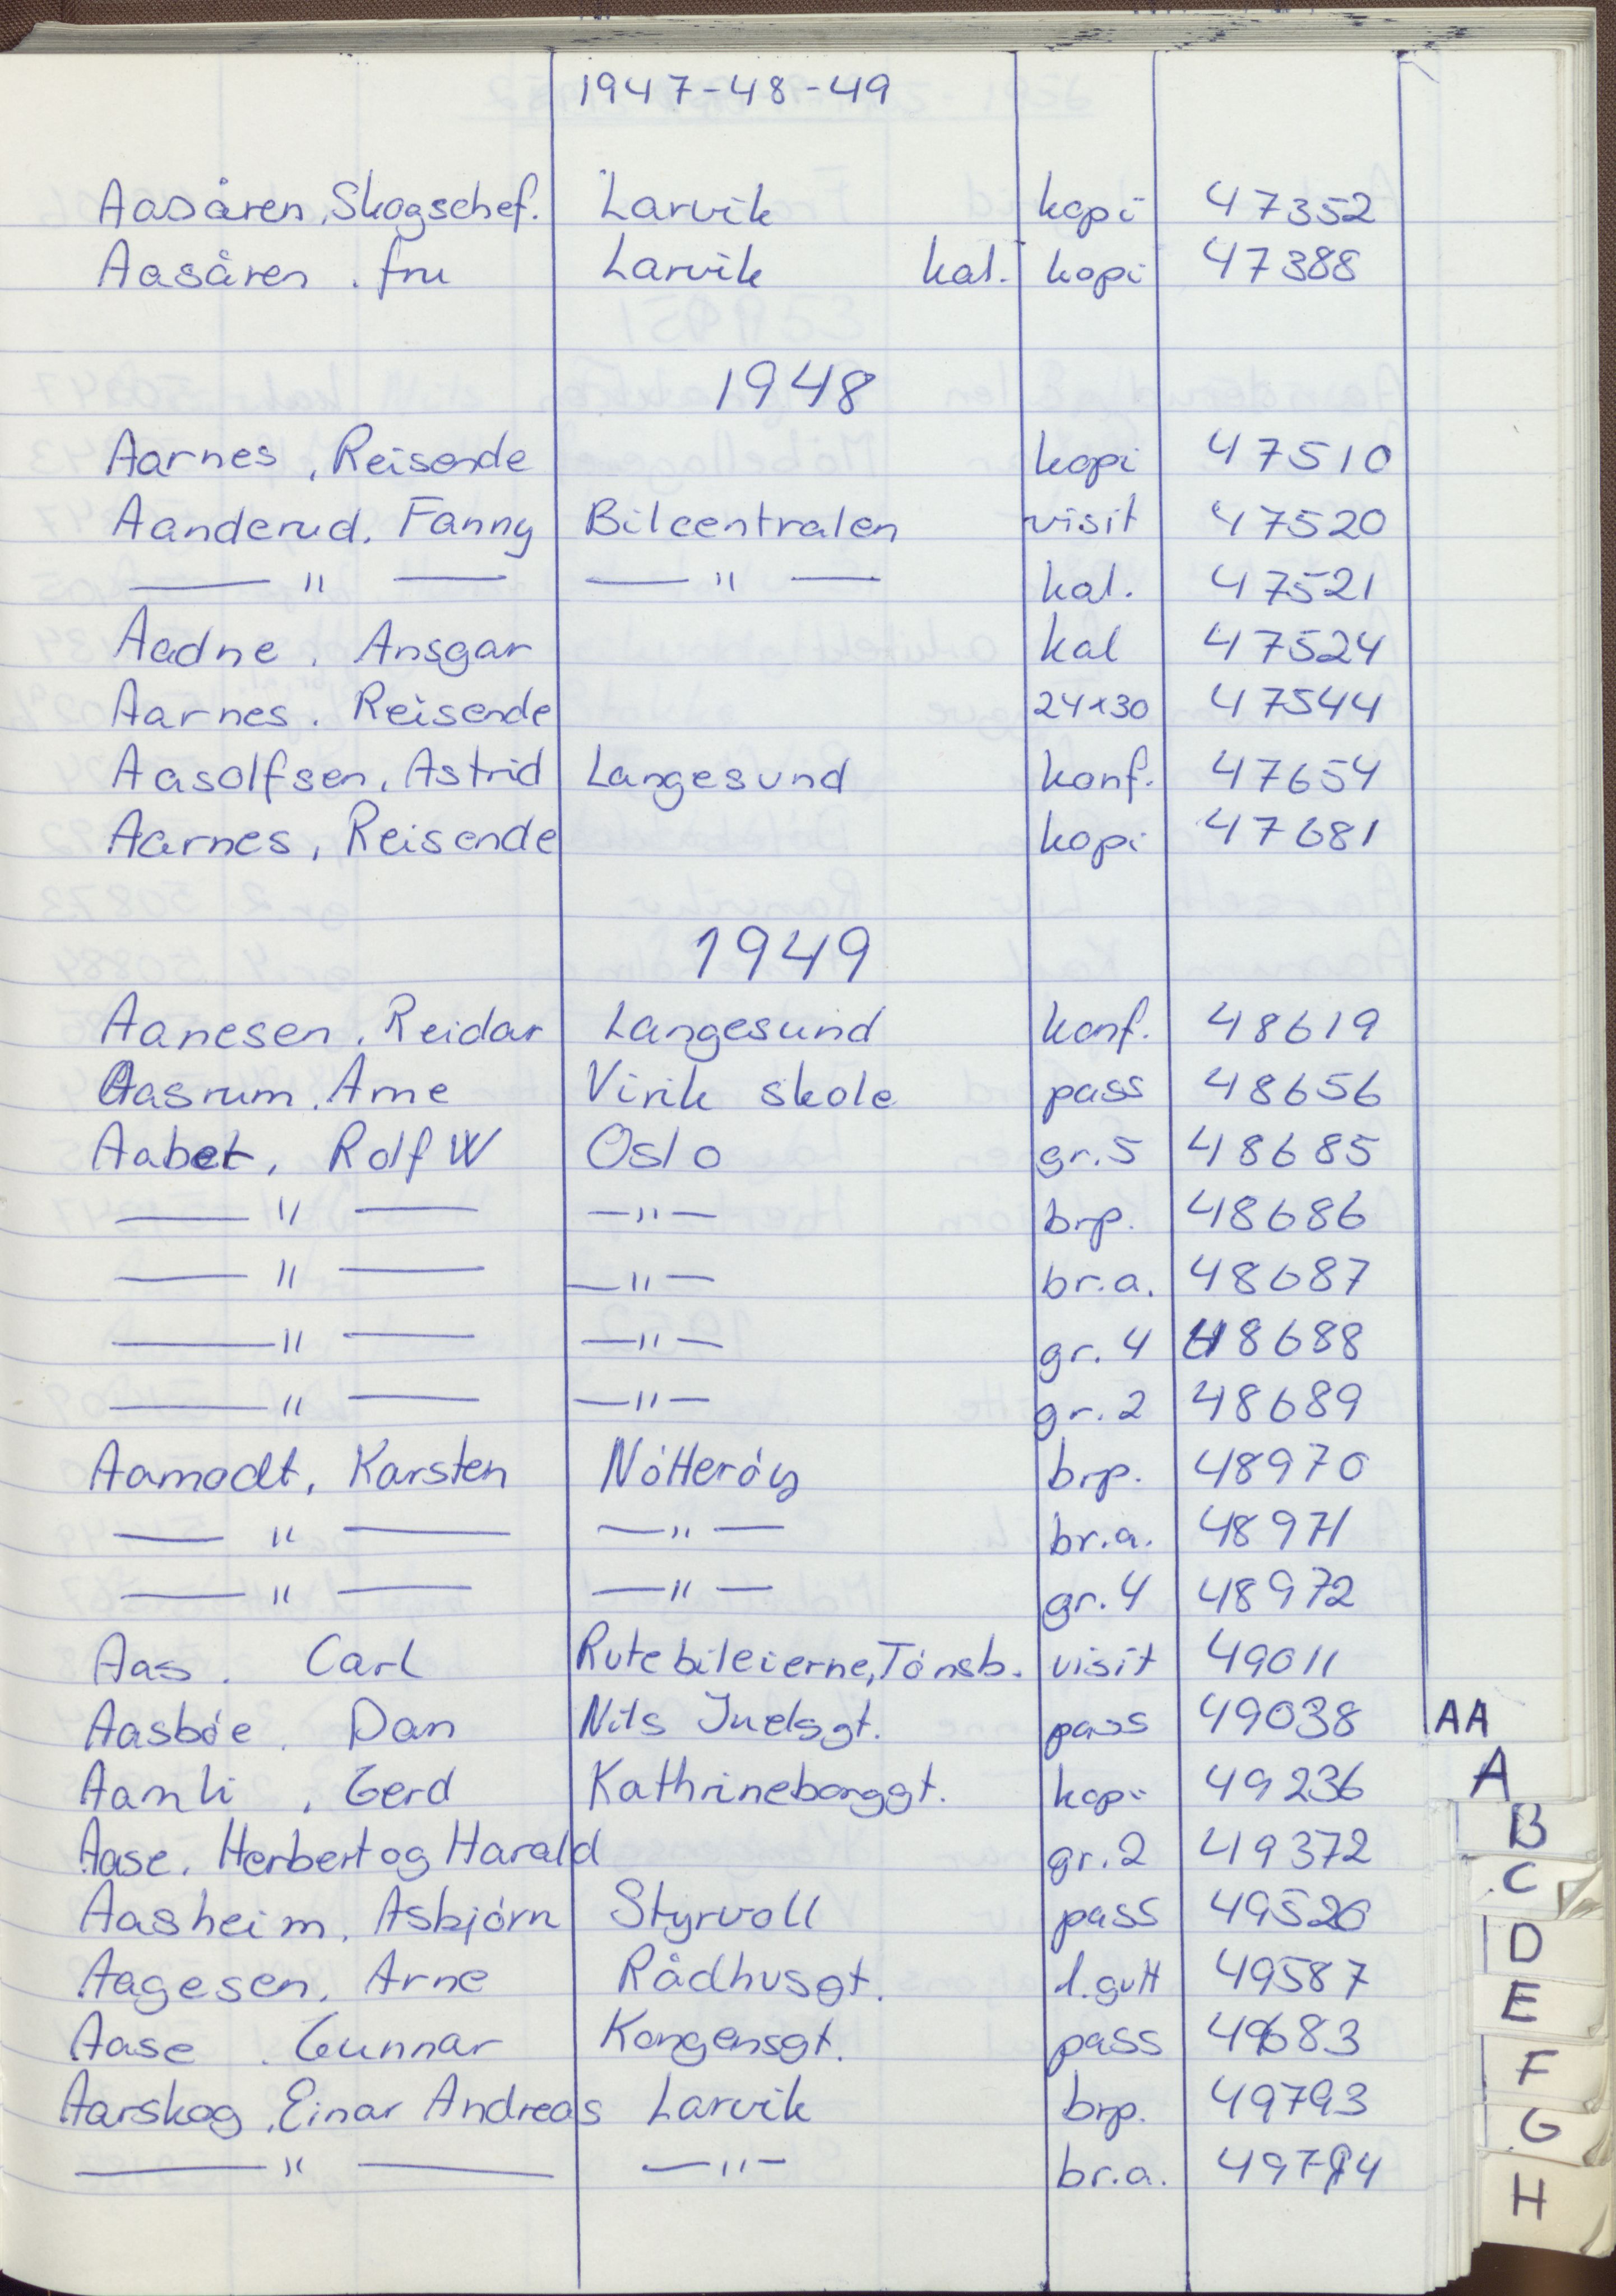 1947-48-49
Aasåren, Skogschef. Larvik kopi 47352
Aasåren, fru Larvik kal. kopi 47388
1948
Aarnes, Reisende kopi 47510
Aanderud, Fanny Bilcentralen visit 47520
— " — — " — kal. 47521
Aadne, Ansgar kal 47524
Aarnes, Reisende 24x30 47544
Aasolfsen, Astrid Langesund konf. 47654
Aarnes, Reisende kopi 47681
1949
Aanesen, Reidar Langesund konf. 48619
Aasrum, Arne Virik skole pass 48656
Aabet, Rolf W Oslo gr. 5 48685
— " — — " — brp. 48686
— " — — " — br.a. 48687
— " — — " — gr. 4 48688
— " — — " — gr. 2 48689
Aamodt, Karsten Nótteróy brp. 48970
— " — — " — br.a. 48971
— " — — " — gr. 4 48972
Aas, Carl Rutebileierne, Tónsb. visit 49011
Aasbóe, Dan Nils Juelsgt. pass 49038 AA
Aamli, Gerd Kathrineborggt. kopi 49236 A
Aase, Herbert og Harald gr. 2 49372 B
C
Aasheim, Asbjórn Styrvoll pass 49520
D
Aagesen, Arne Rådhusgt. 1.gutt 49587
E
Aase, Gunnar Kongensgt. pass 49683
F
Aarskog, Einar Andreas Larvik brp. 49793
G
— " — — " — br.a. 49794
H